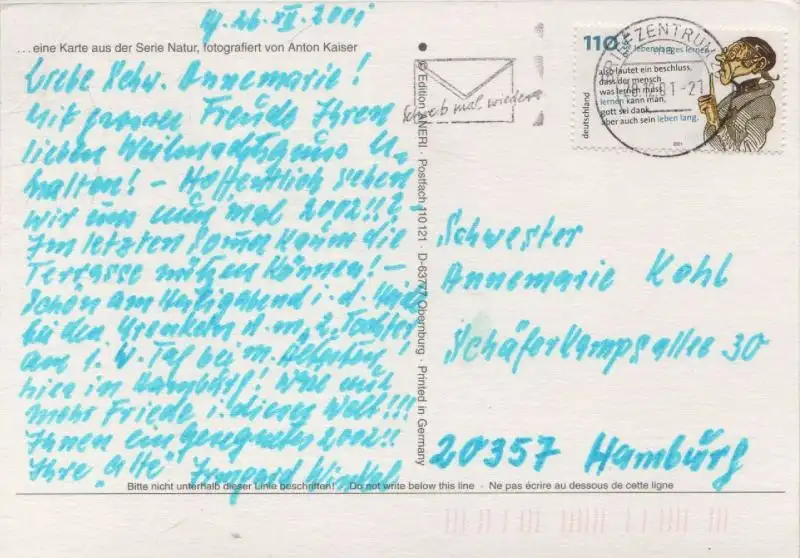 26. XII. 2001
...eine Karte aus der Serie Natur, fotografiert von Anton Kaiser
Liebe Schw. Annemarie!
Mit Freude Ihren
lieben Weihnachtsgruß er-
halten! - Hoffentlich sehen
wir uns mal 2002!! -
Im letzten kaum die
Terrasse nützen können! -
Schön am Heiligabend i. d.
bei den Urenkeln d. m. 2. Tochter
am 1. W. Tag bei m.
hier in Hamburg! Wäre nur
mehr Friede i. dieser Welt!!!
Ihnen ein gesegnetes 2002!!
Ihre "alte" Irmgard Winkel
© Edition ANERI · Postfach 110 121 · D-63777 Obernburg · Printed in Germany
Schreib mal wieder
BRIEFZENTRUM
01-21
110
lebenslanges lernen
also lautet ein beschluss,
dass der mensch
was lernen muss.
lernen kann man,
gott sei dank,
aber auch sein leben lang.
deutschland
2001
Schwester
Annemarie Kohl
Schäferkampsallee 30
20357 Hamburg
Bitte nicht unterhalb dieser Linie beschriften! · Do not write below this line · Ne pas écrire au dessous de cette ligne